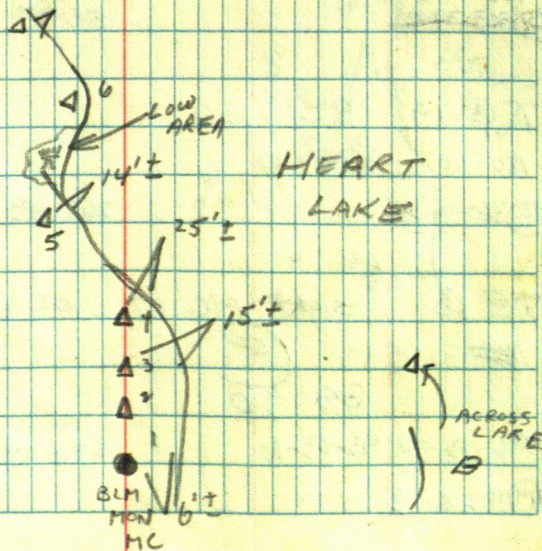 6
LOW
AREA
HEART
LAKE
14'±
5
25'±
4
15'±
3
2
1
ACROSS
LAKE
BLM
MON
MC
6'±